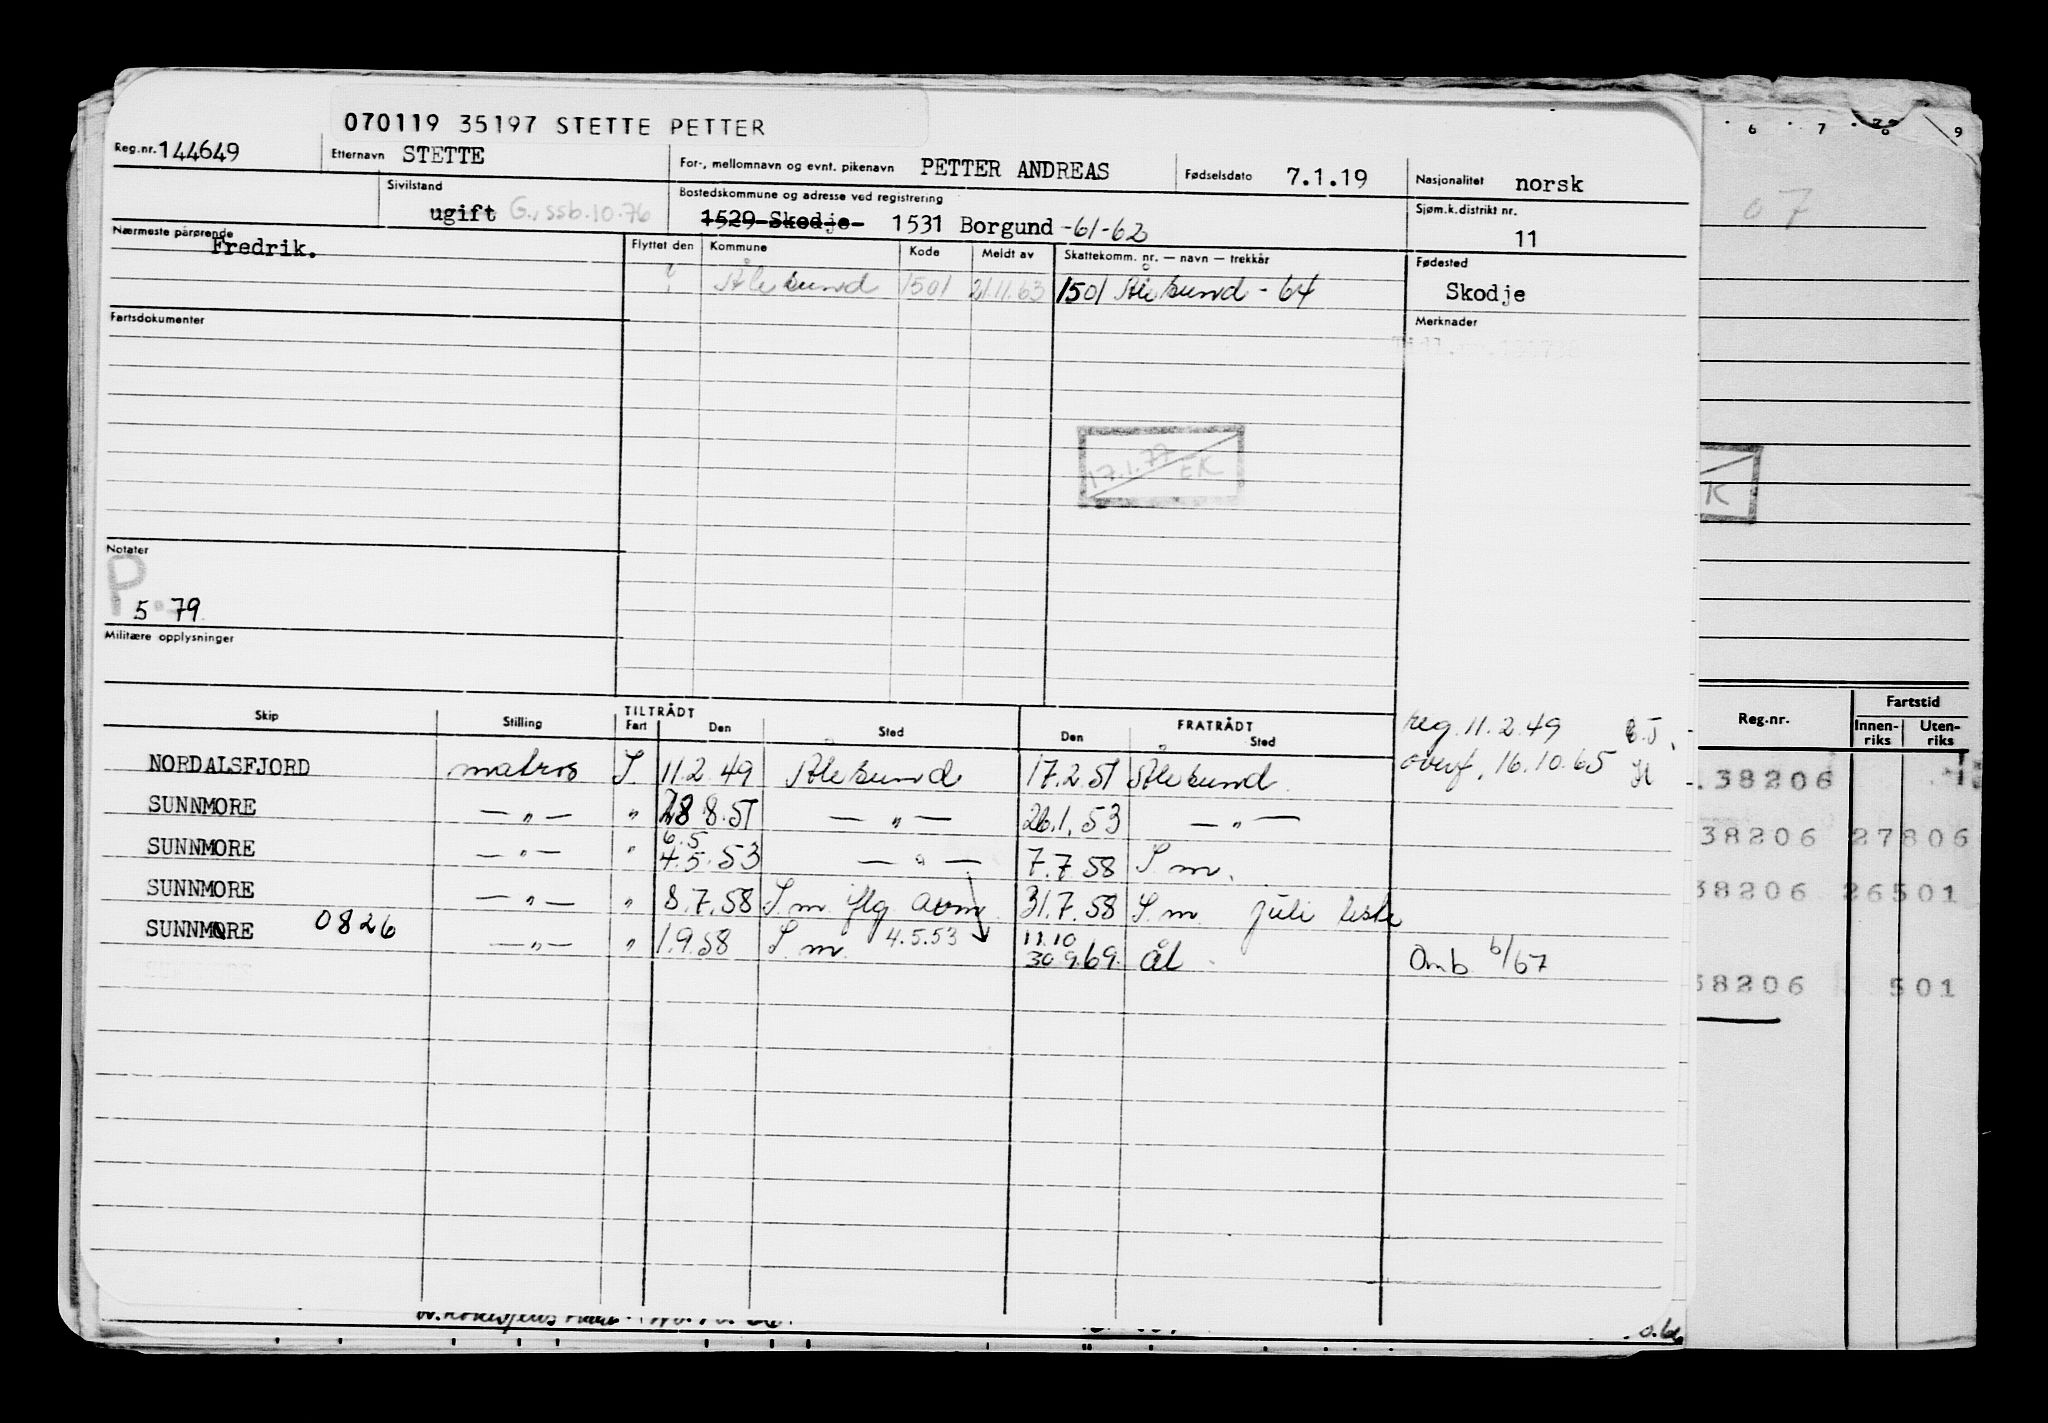 070119 35197 STETTE PETTER
Reg.nr. 144649 Etternavn STETTE For-, mellomnavn og evnt. pikenavn PETTER ANDREAS Fødselsdato 7.1.19 Nasjonalitet norsk
Sivilstand ugift G., ssb. 10.76 Bostedskommune og adresse ved registrering 1529 Skodje 1531 Borgund -61-62 Sjøm.k.distrikt nr. 11
Nærmeste pårørende Fredrik. Flyttet den Kommune Kode Meldt av Skattekomm. nr. — navn — trekkår Fødested
Ålesund 1501 21.11.63 1501 Ålesund - 64 Skodje
Fartsdokumenter Merknader
17.1.77 EK
Notater
P.
5 79
Militære opplysninger
Skip Stilling TILTRÅDT FRATRÅDT
Fart Den Sted Den Sted
reg. 11.2.49
overf. 16.10.65
NORDALSFJORD matros S 11.2.49 Ålesund 17.2.51 Ålesund
SUNNMORE — " — " 28 8.51 — " — 26.1.53 — " —
6.5
SUNNMORE — " — " 4.5.53 — " — 7.7.58 S.m.
SUNNMORE — " — " 8.7.58 S.m. flg 31.7.58 S.m. juli liste
SUNNMØRE 0826 — " — " 1.9.58 S.m. 4.5.53 11.10
30.9.69. ål Omb 6/67
6 7 8 9
07
K
Reg.nr. Fartstid
Innen-riks Uten-riks
.38206
38206 27806
38206 26501
38206 501